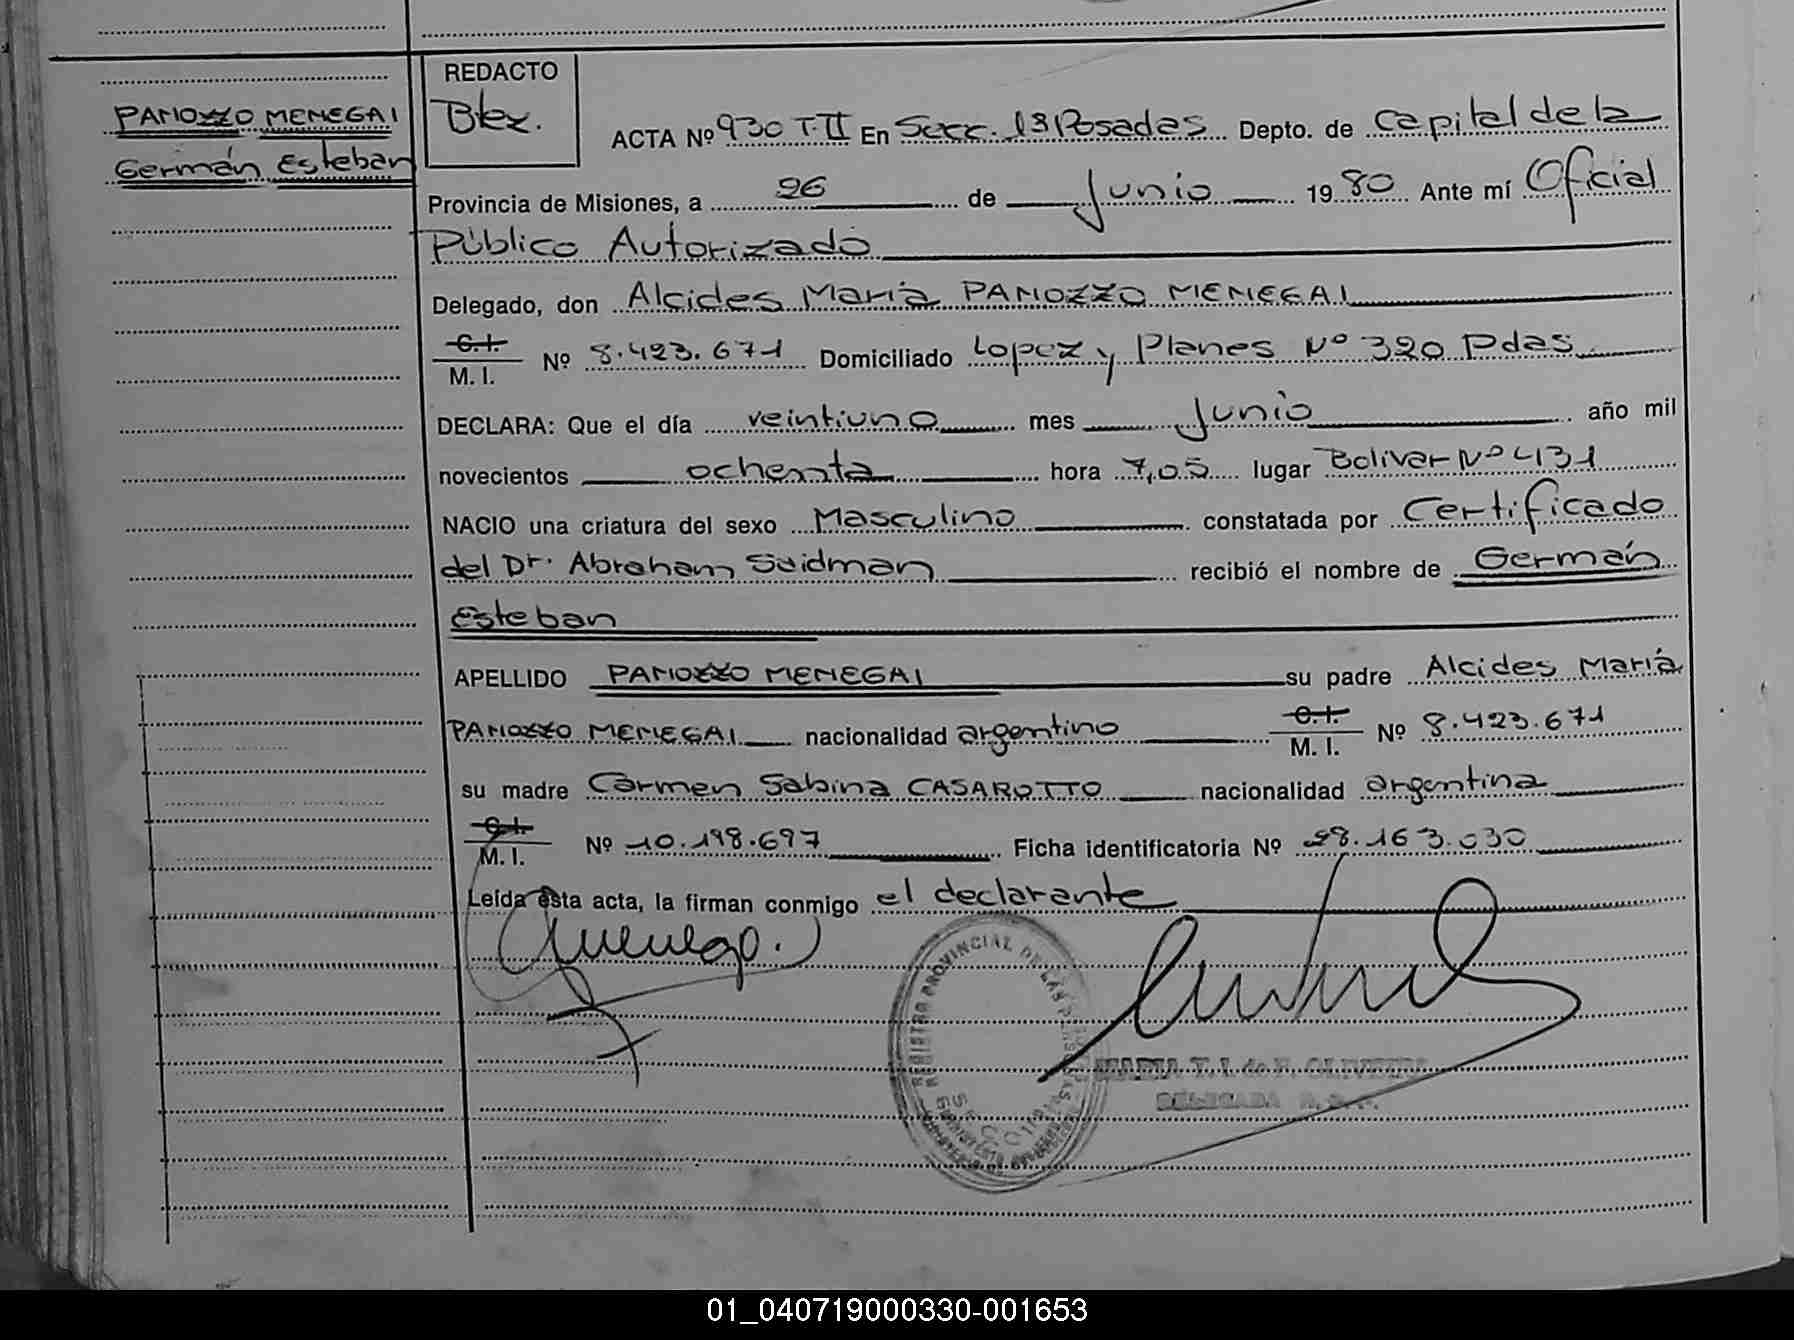 PANOZZO MENEGAI
Germán Esteban
REDACTO
Btez.
ACTA Nº 930 T.II En Secc. 1ª Posadas Depto. de Capital de la
Provincia de Misiones, a 26 de Junio 1980 Ante mí Oficial
Público Autorizado
Delegado, don Alcides María PANOZZO MENEGAI
C.I.
M. I. Nº 8.423.671 Domiciliado Lopez y Planes Nº 320 Pdas
DECLARA: Que el día veintiuno mes Junio año mil
novecientos ochenta hora 7,05 lugar Bolivar Nº 431
NACIO una criatura del sexo Masculino constatada por Certificado
del Dr. Abraham Saidman recibió el nombre de Germán
Esteban
APELLIDO PANOZZO MENEGAI su padre Alcides María
PANOZZO MENEGAI nacionalidad argentino C.I. M. I. Nº 8.423.671
su madre Carmen Sabina CASAROTTO nacionalidad argentina
C.I.
M. I. Nº 10.198.697 Ficha identificatoria Nº 28.163.030
Leída esta acta, la firman conmigo el declarante
REGISTRO PROVINCIAL DE LAS PERSONAS
MARIA T. I. de F. OLIVEIRA
DELEGADA
01_040719000330-001653